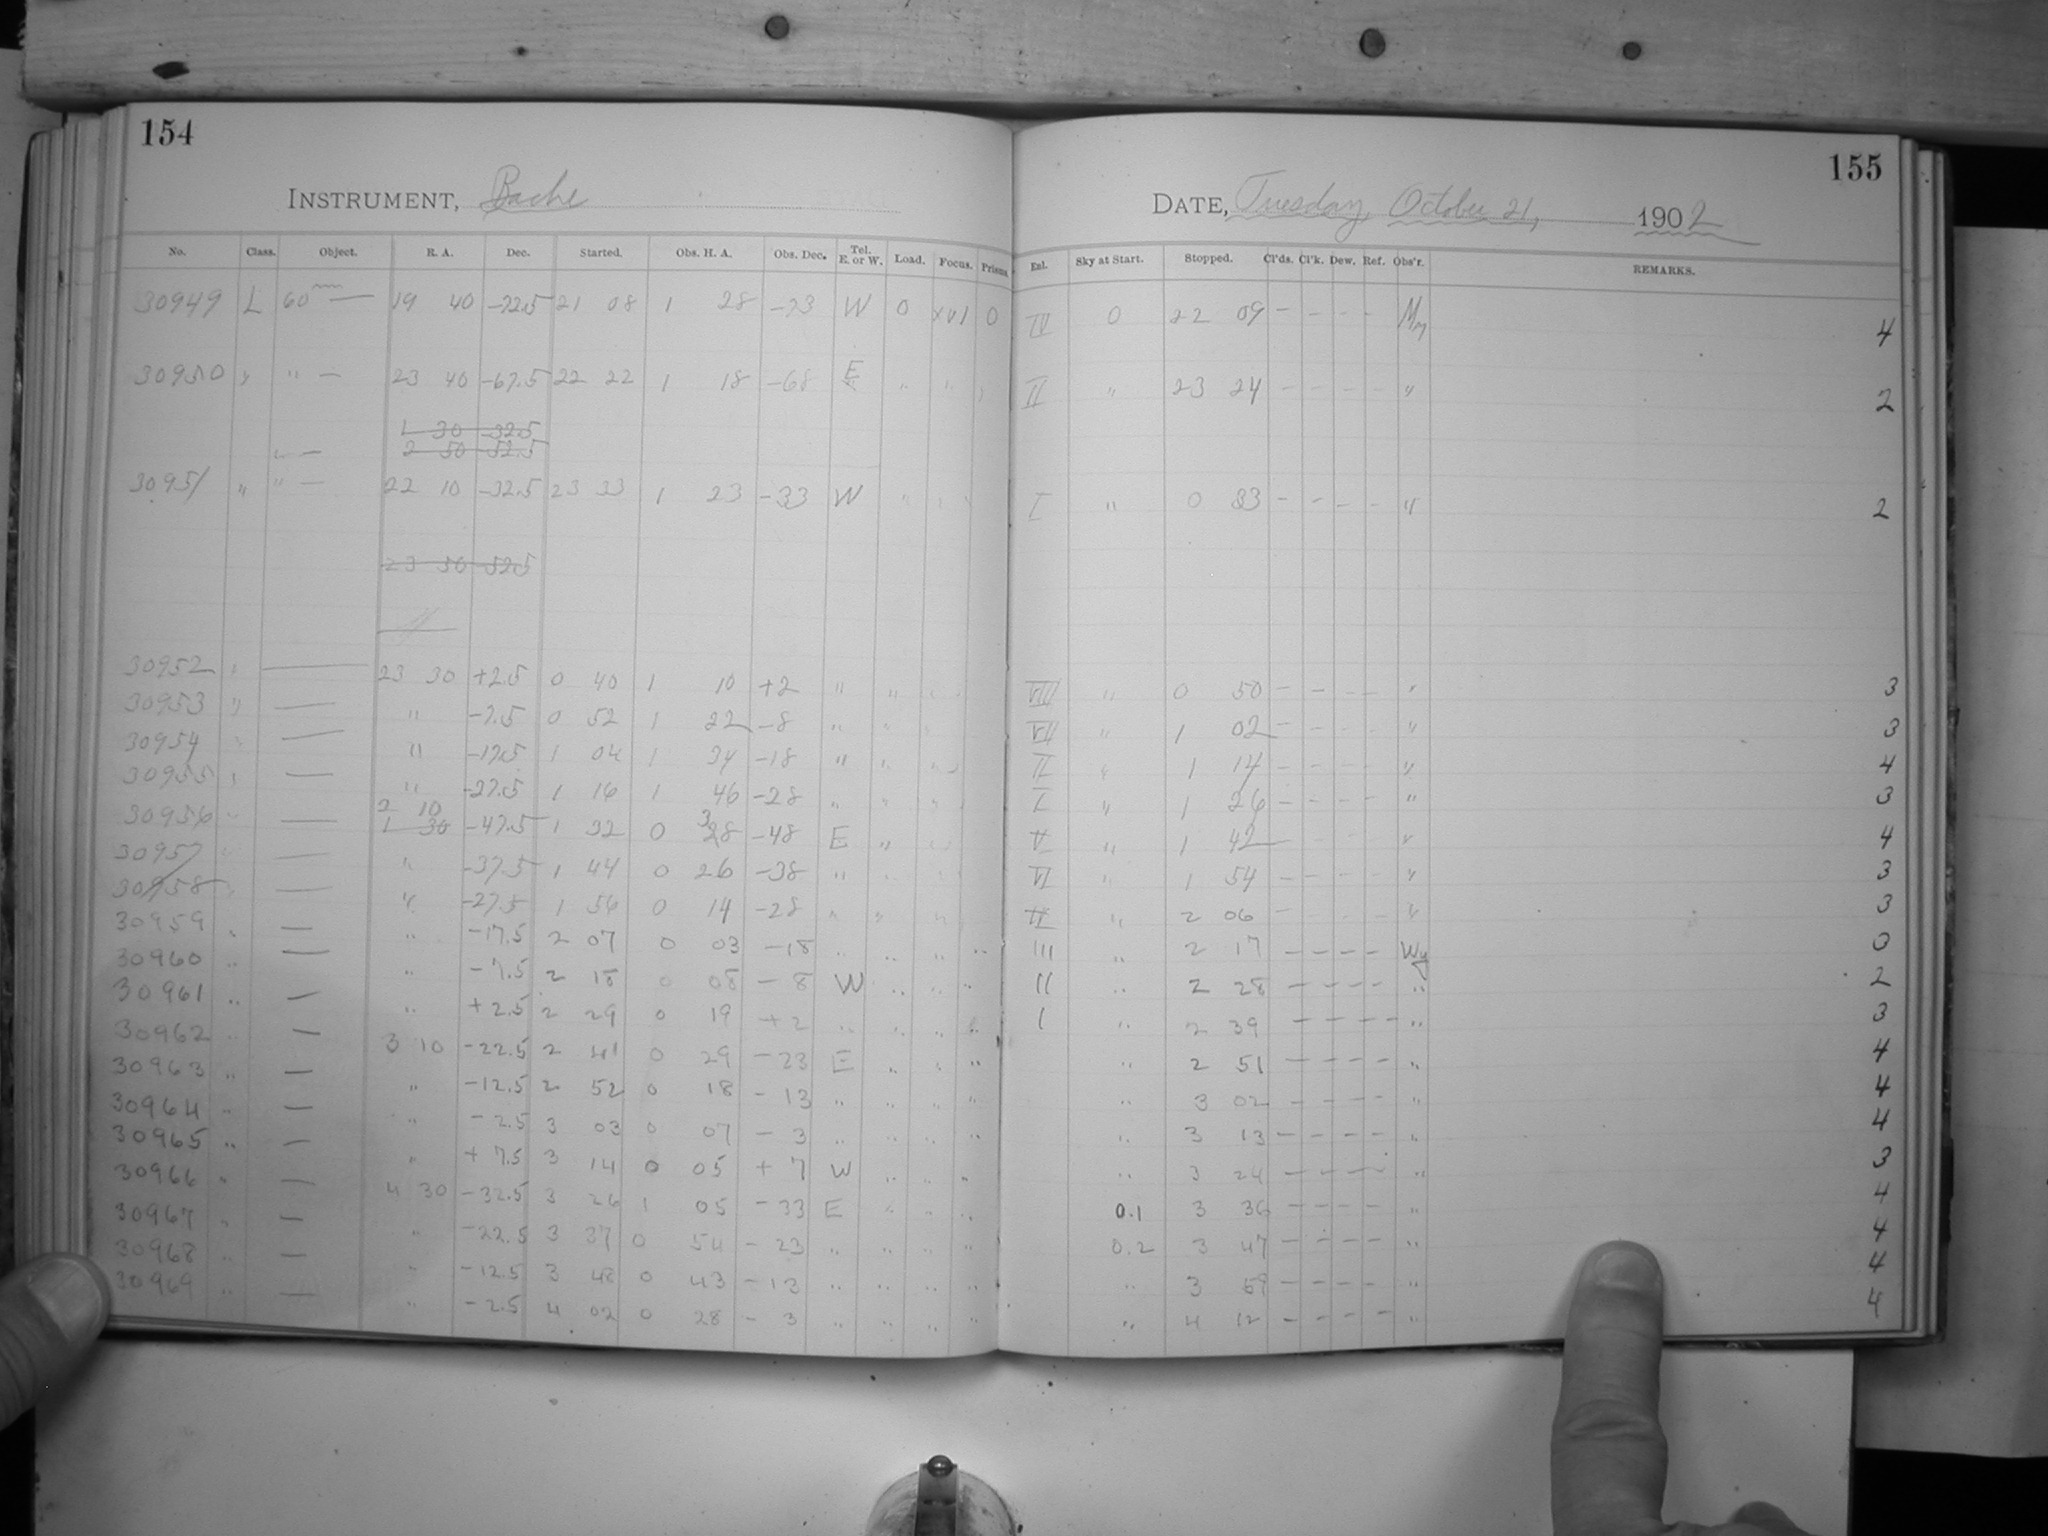 154
INSTRUMENT, Bache
No. Class. Object. R. A. Dec. Started. Obs. H. A. Obs. Dec. Tel. E. or W. Load. Focus. Prisms
30949 L 60m — 19 40 -72.5 21 08 1 28 -73 W 0 xvi 0
30950 " " — 23 40 -67.5 22 22 1 18 -68 E " " "
1 30 -32.5
" — 2 50 -52.5
30951 " " — 22 10 -32.5 23 33 1 23 -33 W " " "
23 30 -52.5
30952 " — 23 30 +2.5 0 40 1 10 +2 " " " "
30953 " — " -7.5 0 52 1 22 -8 " " " "
30954 " — " -17.5 1 04 1 34 -18 " " " "
30955 " — " -27.5 1 16 1 46 -28 " " " "
2 10
30956 " — 1 30 -47.5 1 32 0 38 -48 E " " "
30957 " — " -37.5 1 44 0 26 -38 " " " "
30958 " — " -27.5 1 56 0 14 -28 " " " "
30959 " — " -17.5 2 07 0 03 -18 " " " "
30960 " — " -7.5 2 18 0 08 -8 W " " "
30961 " — " +2.5 2 29 0 19 +2 " " " "
30962 " — 3 10 -22.5 2 41 0 29 -23 E " " "
30963 " — " -12.5 2 52 0 18 -13 " " " "
30964 " — " -2.5 3 03 0 07 -3 " " " "
30965 " — " +7.5 3 14 0 05 +7 W " " "
30966 " — 4 30 -32.5 3 26 1 05 -33 E " " "
30967 " — " -22.5 3 37 0 54 -23 " " " "
30968 " — " -12.5 3 48 0 43 -13 " " " "
30969 " — " -2.5 4 02 0 28 -3 " " " "
155
DATE, Tuesday, October 21, 1902
Enl. Sky at Start. Stopped. Cl'ds. Cl'k. Dew. Ref. Obs'r. REMARKS.
0 22 09 - - - - My 4
II " 23 24 - - - - " 2
I " 0 33 - - - - " 2
VIII " 0 50 - - - - " 3
VII " 1 02 - - - - " 3
" 1 14 - - - - " 4
" 1 26 - - - - " 3
" 1 42 - - - - " 4
VI " 1 54 - - - - " 3
" 2 06 - - - - " 3
III " 2 17 - - - - Wy 3
II " 2 28 - - - - " 2
I " 2 39 - - - - " 3
" 2 51 - - - - " 4
" 3 02 - - - - " 4
" 3 13 - - - - " 4
" 3 24 - - - - " 3
0.1 3 36 - - - - " 4
0.2 3 47 - - - - " 4
" 3 59 - - - - " 4
" 4 12 - - - - " 4